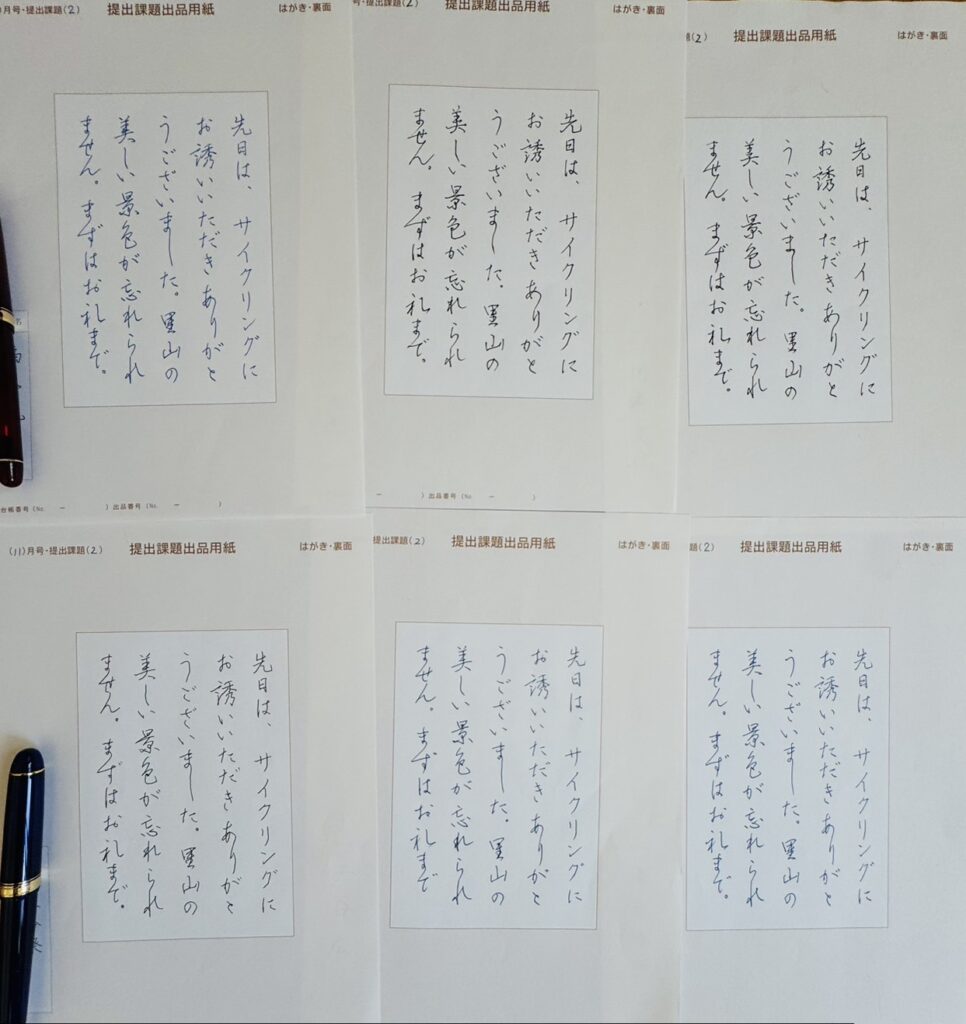 月号・提出課題(2) 提出課題出品用紙 はがき・裏面
先日は、サイクリングに
お誘いいただきありがと
うございました。里山の
美しい景色が忘れられ
ません。まずはお礼まで。
台帳番号(No. － )出品番号(No. － )
号・提出課題(2) 提出課題出品用紙 はがき・裏面
先日は、サイクリングに
お誘いいただきありがと
うございました。里山の
美しい景色が忘れられ
ません。まずはお礼まで。
－ )出品番号(No. － )
題(2) 提出課題出品用紙 はがき・裏面
先日は、サイクリングに
お誘いいただきありがと
うございました。里山の
美しい景色が忘れられ
ません。まずはお礼まで。
(11)月号・提出課題(2) 提出課題出品用紙 はがき・裏面
先日は、サイクリングに
お誘いいただきありがと
うございました。里山の
美しい景色が忘れられ
ません。まずはお礼まで。
提出課題(2) 提出課題出品用紙 はがき・裏面
先日は、サイクリングに
お誘いいただきありがと
うございました。里山の
美しい景色が忘れられ
ません。まずはお礼まで
題(2) 提出課題出品用紙 はがき・裏面
先日は、サイクリングに
お誘いいただきありがと
うございました。里山の
美しい景色が忘れられ
ません。まずはお礼まで。